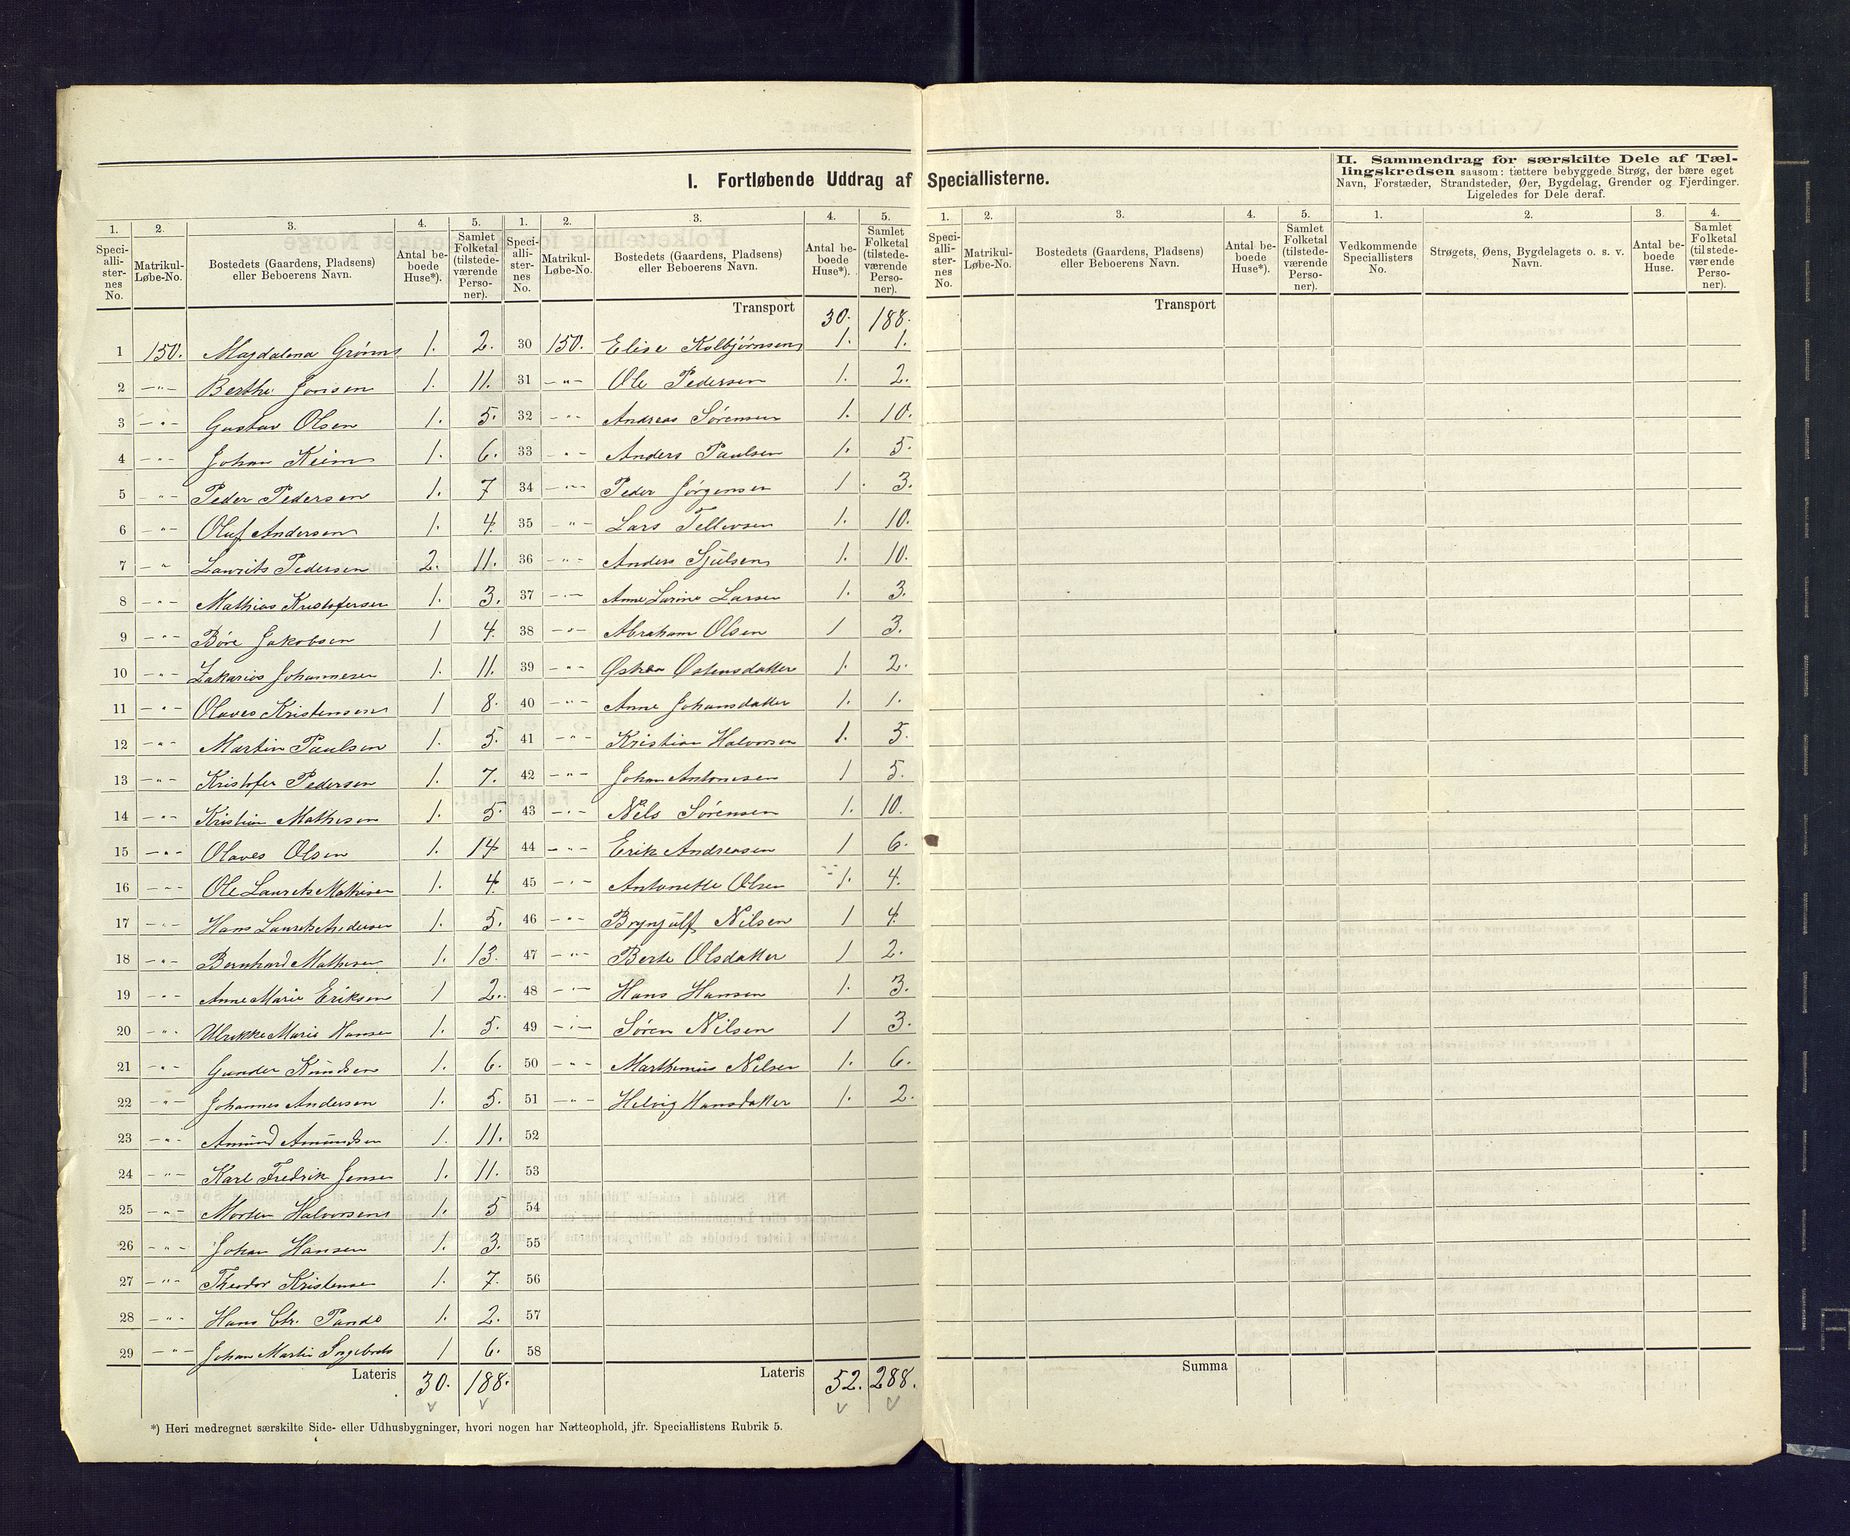 I. Fortløbende Uddrag af Speciallisterne.
II. Sammendrag for særskilte Dele af Tællingskredsen saasom: tættere bebyggede Strøg, der bære eget Navn, Forstæder, Strandsteder, Øer, Bygdelag, Grender og Fjerdinger. Ligeledes for Dele deraf.
1. 2. 3. 4. 5. 1. 2. 3. 4. 5. 1. 2. 3. 4. 5. 1. 2. 3. 4.
Speciallisternes No. Matrikul-Løbe-No. Bostedets (Gaardens, Pladsens) eller Beboerens Navn. Antal beboede Huse*). Samlet Folketal (tilstedeværende Personer).
Speciallisternes No. Matrikul-Løbe-No. Bostedets (Gaardens, Pladsens) eller Beboerens Navn. Antal beboede Huse*). Samlet Folketal (tilstedeværende Personer).
Speciallisternes No. Matrikul-Løbe-No. Bostedets (Gaardens, Pladsens) eller Beboerens Navn. Antal beboede Huse*). Samlet Folketal (tilstedeværende Personer).
Vedkommende Speciallisters No. Strøgets, Øens, Bygdelagets o. s. v. Navn. Antal beboede Huse. Samlet Folketal (tilstedeværende Personer).
1 150. Magdalena 1. 2.
2 -"- Berthe Jonsen 1. 11.
3 -"- Gustav Olsen 1. 5.
4 -"- Johan Keim 1. 6.
5 -"- Peder Pedersen 1. 7
6 -"- Oluf Andersen 1. 4.
7 -"- Laurits Pedersen 2. 11.
8 -"- Mathias Kristofersen 1. 3.
9 -"- Børe Jakobsen 1 4.
10 -"- Zakarias Johannesen 1. 11.
11 -"- Olaves Kristensen 1 8.
12 -"- Martin Paulsen 1. 5.
13 -"- Kristofer Pedersen 1. 7.
14 -"- Kristian Mathisen 1. 5.
15 -"- Olaves Olsen 1. 14
16 -"- Ole Laurits Mathisen 1. 4.
17 -"- Hans Laurits Andersen 1. 5.
18 -"- Bernhard Mathisen 1. 13.
19 -"- Anne Marie Eriksen 1 2.
20 -"- Ulrikke Marie Hansen 1. 5.
21 -"- Gunder Knudsen 1. 6.
22 -"- Johannes Andersen 1. 5.
23 -"- Amund Amundsen 1. 11.
24 -"- Karl Fredrik Jensen 1. 11.
25 -"- Morten Halvorsen 1. 5
26 -"- Johan Hansen 1. 3.
27 -"- Theodor Kristensen 1. 7.
28 -"- Hans Chr. Pande 1. 2.
29 -"- Johan Martin 1 6.
Lateris 30. 188.
Transport 30. 188.
30 150. Elise Kolbjørnsen 1. 1.
31 -"- Ole Pedersen 1. 2.
32 -"- Andreas Sørensen 1. 10.
33 -"- Anders Paulsen 1. 5.
34 -"- Peder Jørgensen 1. 3.
35 -"- Lars Tellevsen 1. 10.
36 -"- Anders 1. 10.
37 -"- Anne Larine Larsen 1. 3.
38 -"- Abraham Olsen 1 3.
39 -"- Østensdatter 1. 2.
40 -"- Anne Johansdatter 1. 1.
41 -"- Kristian Halvorsen 1. 5.
42 -"- Johan Antonesen 1 5.
43 -"- Nels Sørensen 1. 10.
44 -"- Erik Andreasen 1 6.
45 -"- Antonette Olsen 1. 4.
46 -"- Brynjulf Nilsen 1 4.
47 -"- Berte Olsdatter 1 2.
48 -"- Hans Hansen 1. 3.
49 -"- Søren Nilsen 1 3.
50 -"- Marthinius Nilsen 1. 6.
51 -"- Helvig Hansdatter 1. 2.
52
53
54
55
56
57
58
Lateris 52. 288.
Transport
Summa
*) Heri medregnet særskilte Side- eller Udhusbygninger, hvori nogen har Natteophold, jfr. Speciallistens Rubrik 5.